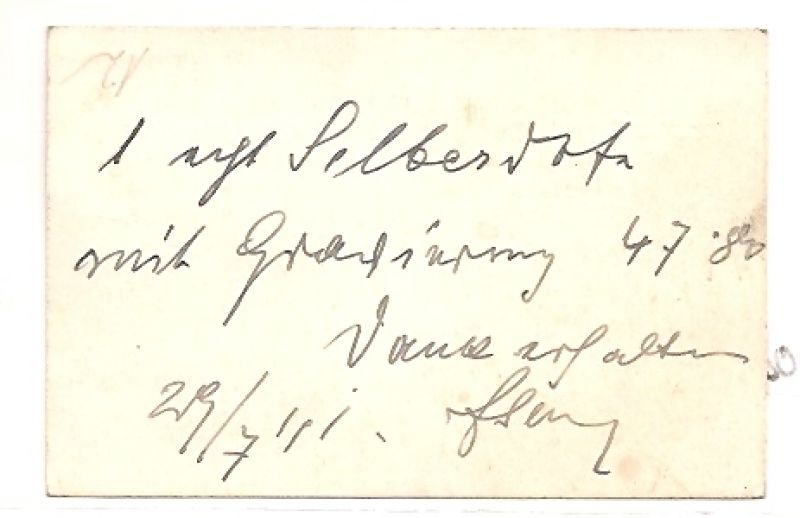 1 echt Silberdose
mit Gravierung 47.80
Dank erhalten
29/7 11.